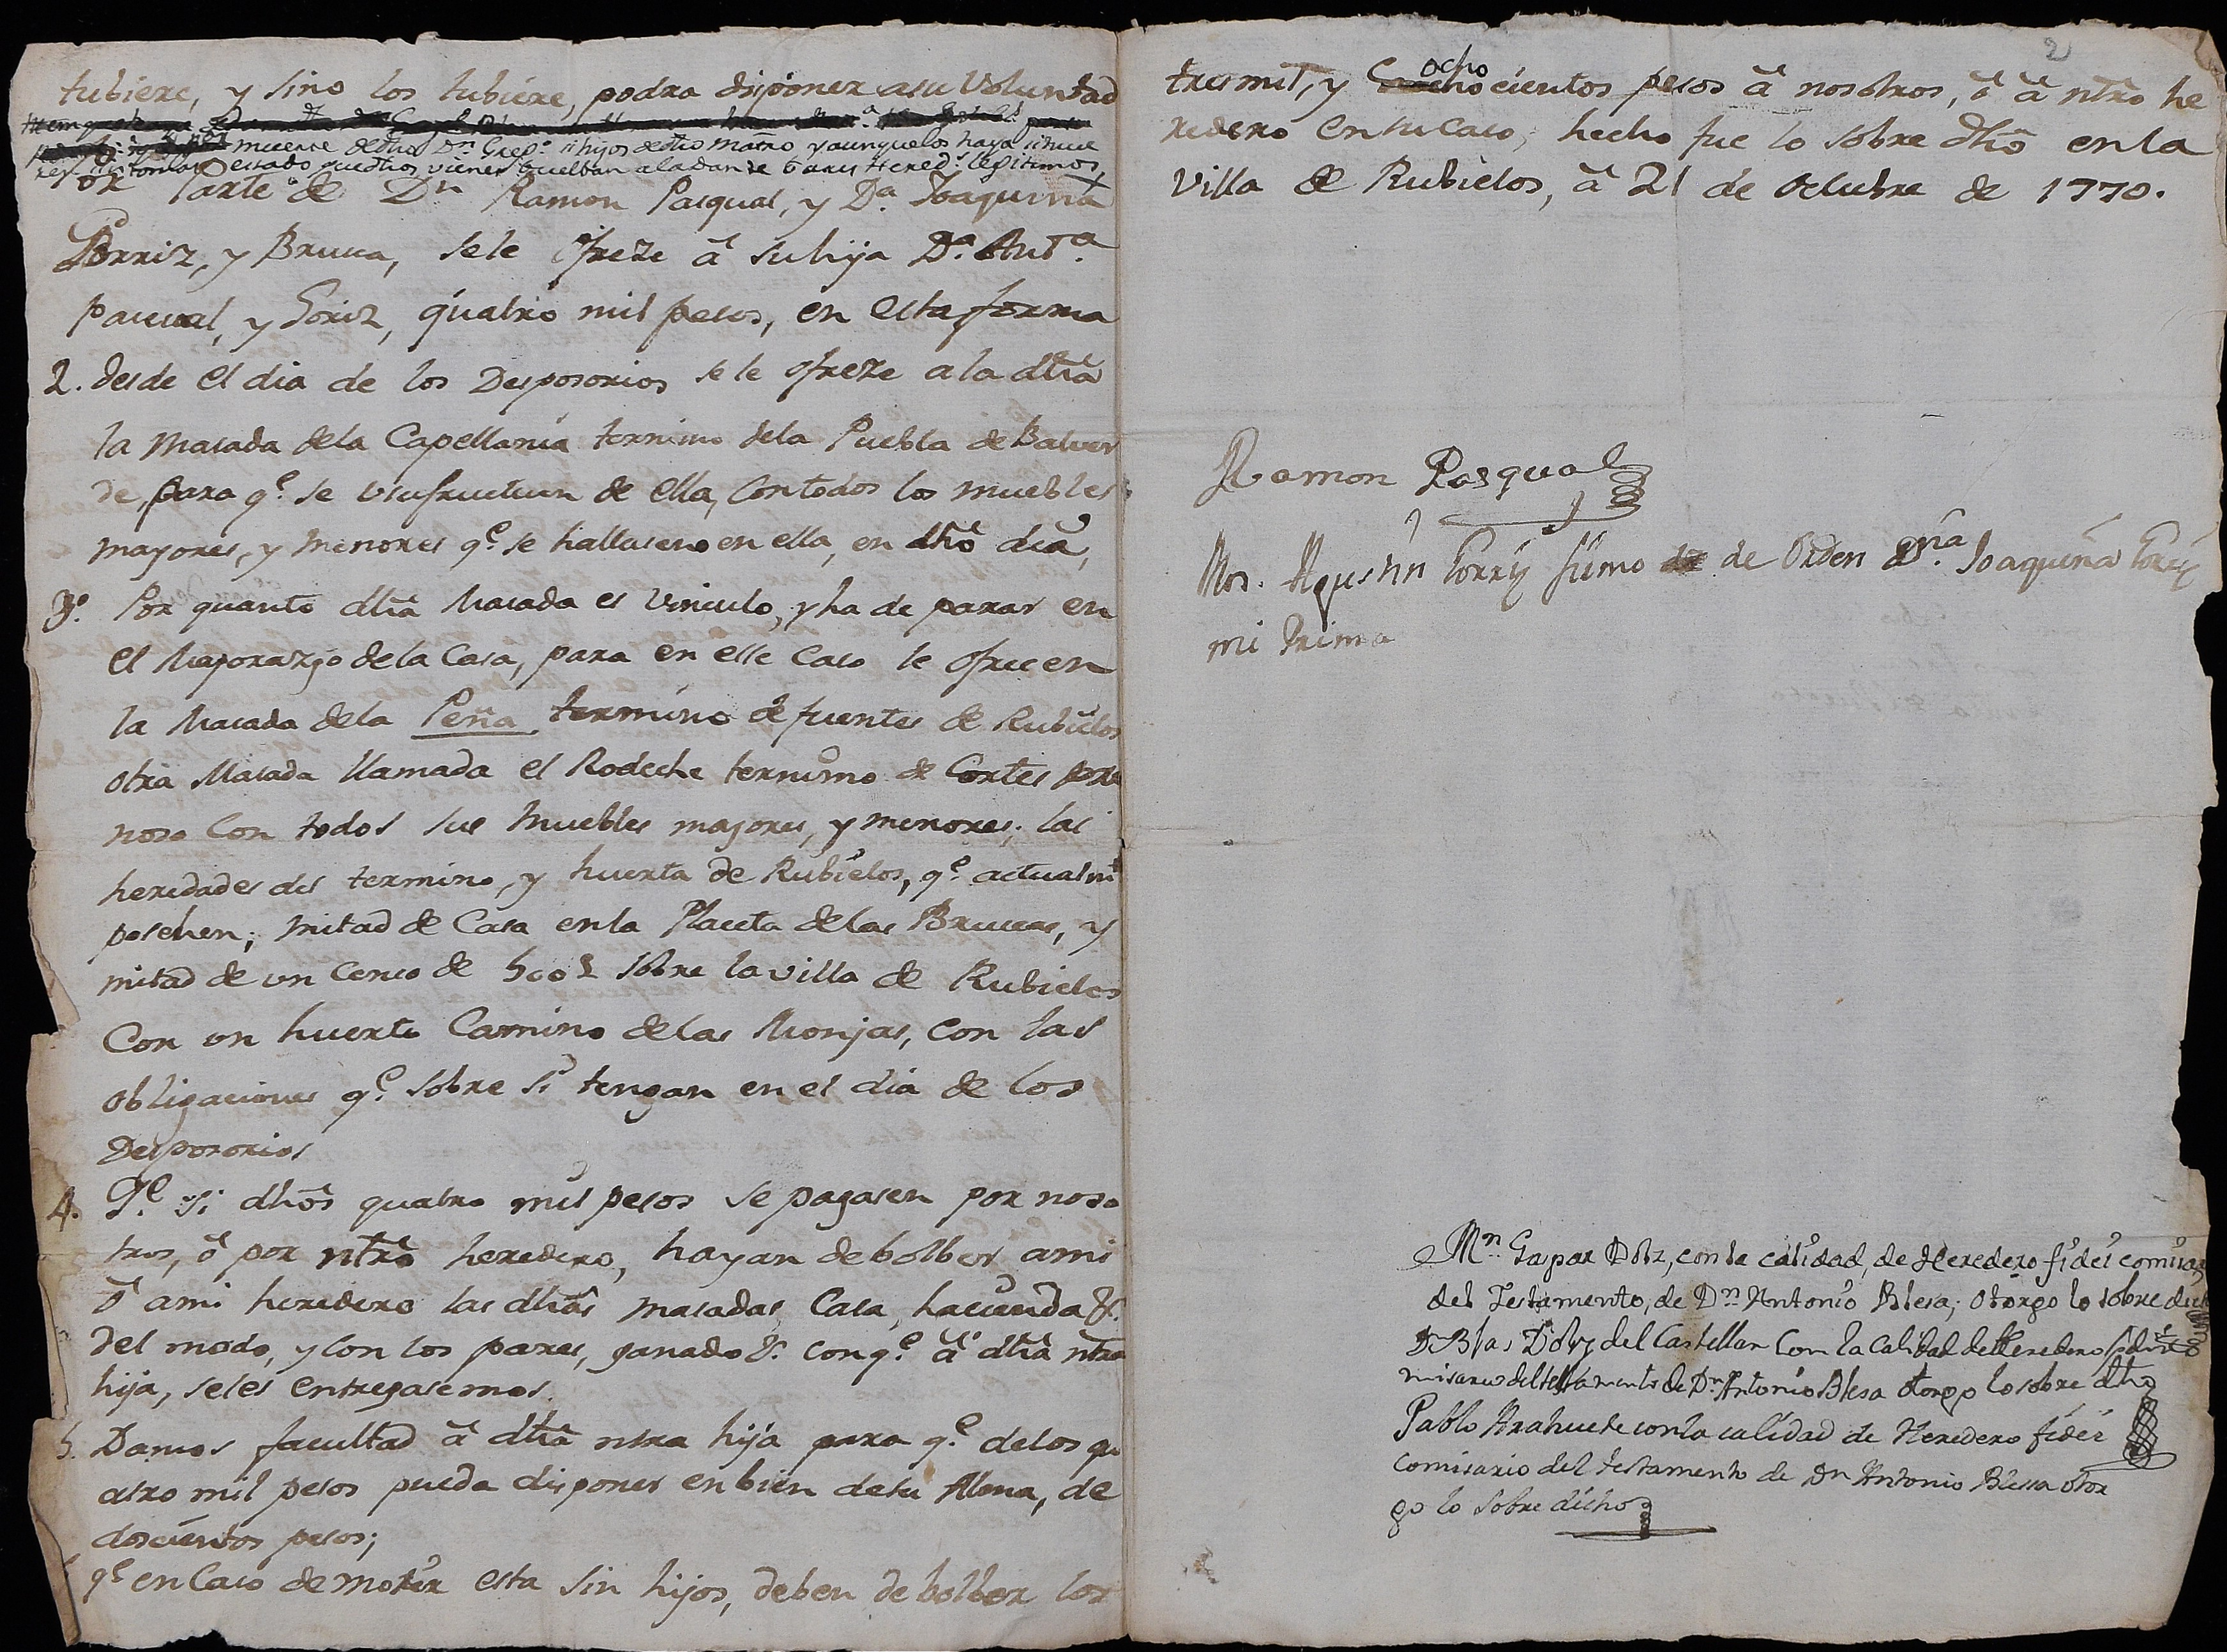 tubiere, y sino los tubiere, podra disponer asu Voluntad
muerse dedho Dn. Grego. si hijos dedho matrno y aunquelos haya si huie
estado quedhos vienes buelban ala dande bares Hered.s legitimos,
or Parte de Dn Ramon Pasqual, y Da. Joaquina
Torriz, y Bruca, sele ofreze â suhija Da. Anta.
Pascual, y Goriz, quatro mil pesos, en esta forma
2. desde el dia de los Desposorios se le ofreze ala dha
la Masada dela Capellania termino dela Puebla de Balver
de, para qe. se usufructuen de ella, con todos los muebles
mayores, y menores qe. se hallasen en ella, en dho dia,
3o. Por quanto dha Masada es vinculo, y ha de parar en
el Mayorazgo dela Casa, para en esse Caso le ofrecen
la Masada dela Peña termino de fuentes de Rubielos
otra Masada llamada el Rodeche termino de Cortes
noso Con todos sus Muebles mayores, y menores; las
heredades del termino, y huerta de Rubielos, qe. actualmte
posehen; mitad de Casa enla Placeta delas Brucas, y
mitad de un Censo de 500 L sobre la villa de Rubielos
Con un huerto Camino delas Monjas, con las
obligaciones qe. sobre si tengan en el dia de los
Desposorios
4. Qe. si dhos quatro mil pesos se pagasen por noso
tros, ô por ntro heredero, hayan de bolber ami
ô ami heredero las dhas masadas, Casa, hacienda &.
del modo, y con los pares, ganado &. conqe. â dha ntra
hija, seles entregasemos.
5. Damos facultad â dha ntra hija para qe. delos qu
atro mil pesos pueda disponer en bien de su Alma, de
doscientos pesos;
qe en Caso de morir esta sin hijos, deben de bolber los
2
tres mil, y ocho cientos pesos â nosotros, ô â ntro he
redero en su caso, hecho fue lo sobre dho en la
Villa de Rubielos, â 21 de Octubre de 1770.
Ramon Pasqual
Mos. Agustin Torriz firmo de Orden Dña. Joaquina Torriz
mi Prima
Mn. Gaspar Dolz, con la calidad, de Heredero fideicomisario
del Testamento, de Dn. Antonio Blesa; otorgo lo sobre dicho
Dn Blas Dolz del Castellar con la Calidad de Heredero fideico
misario del testamento de Dn. Antonio Blesa otorgo lo sobre dho
Pablo Arahuete con la calidad de Heredero fidei
comisario del testamento de Dn Antonio Blessa otor
go lo sobre dicho